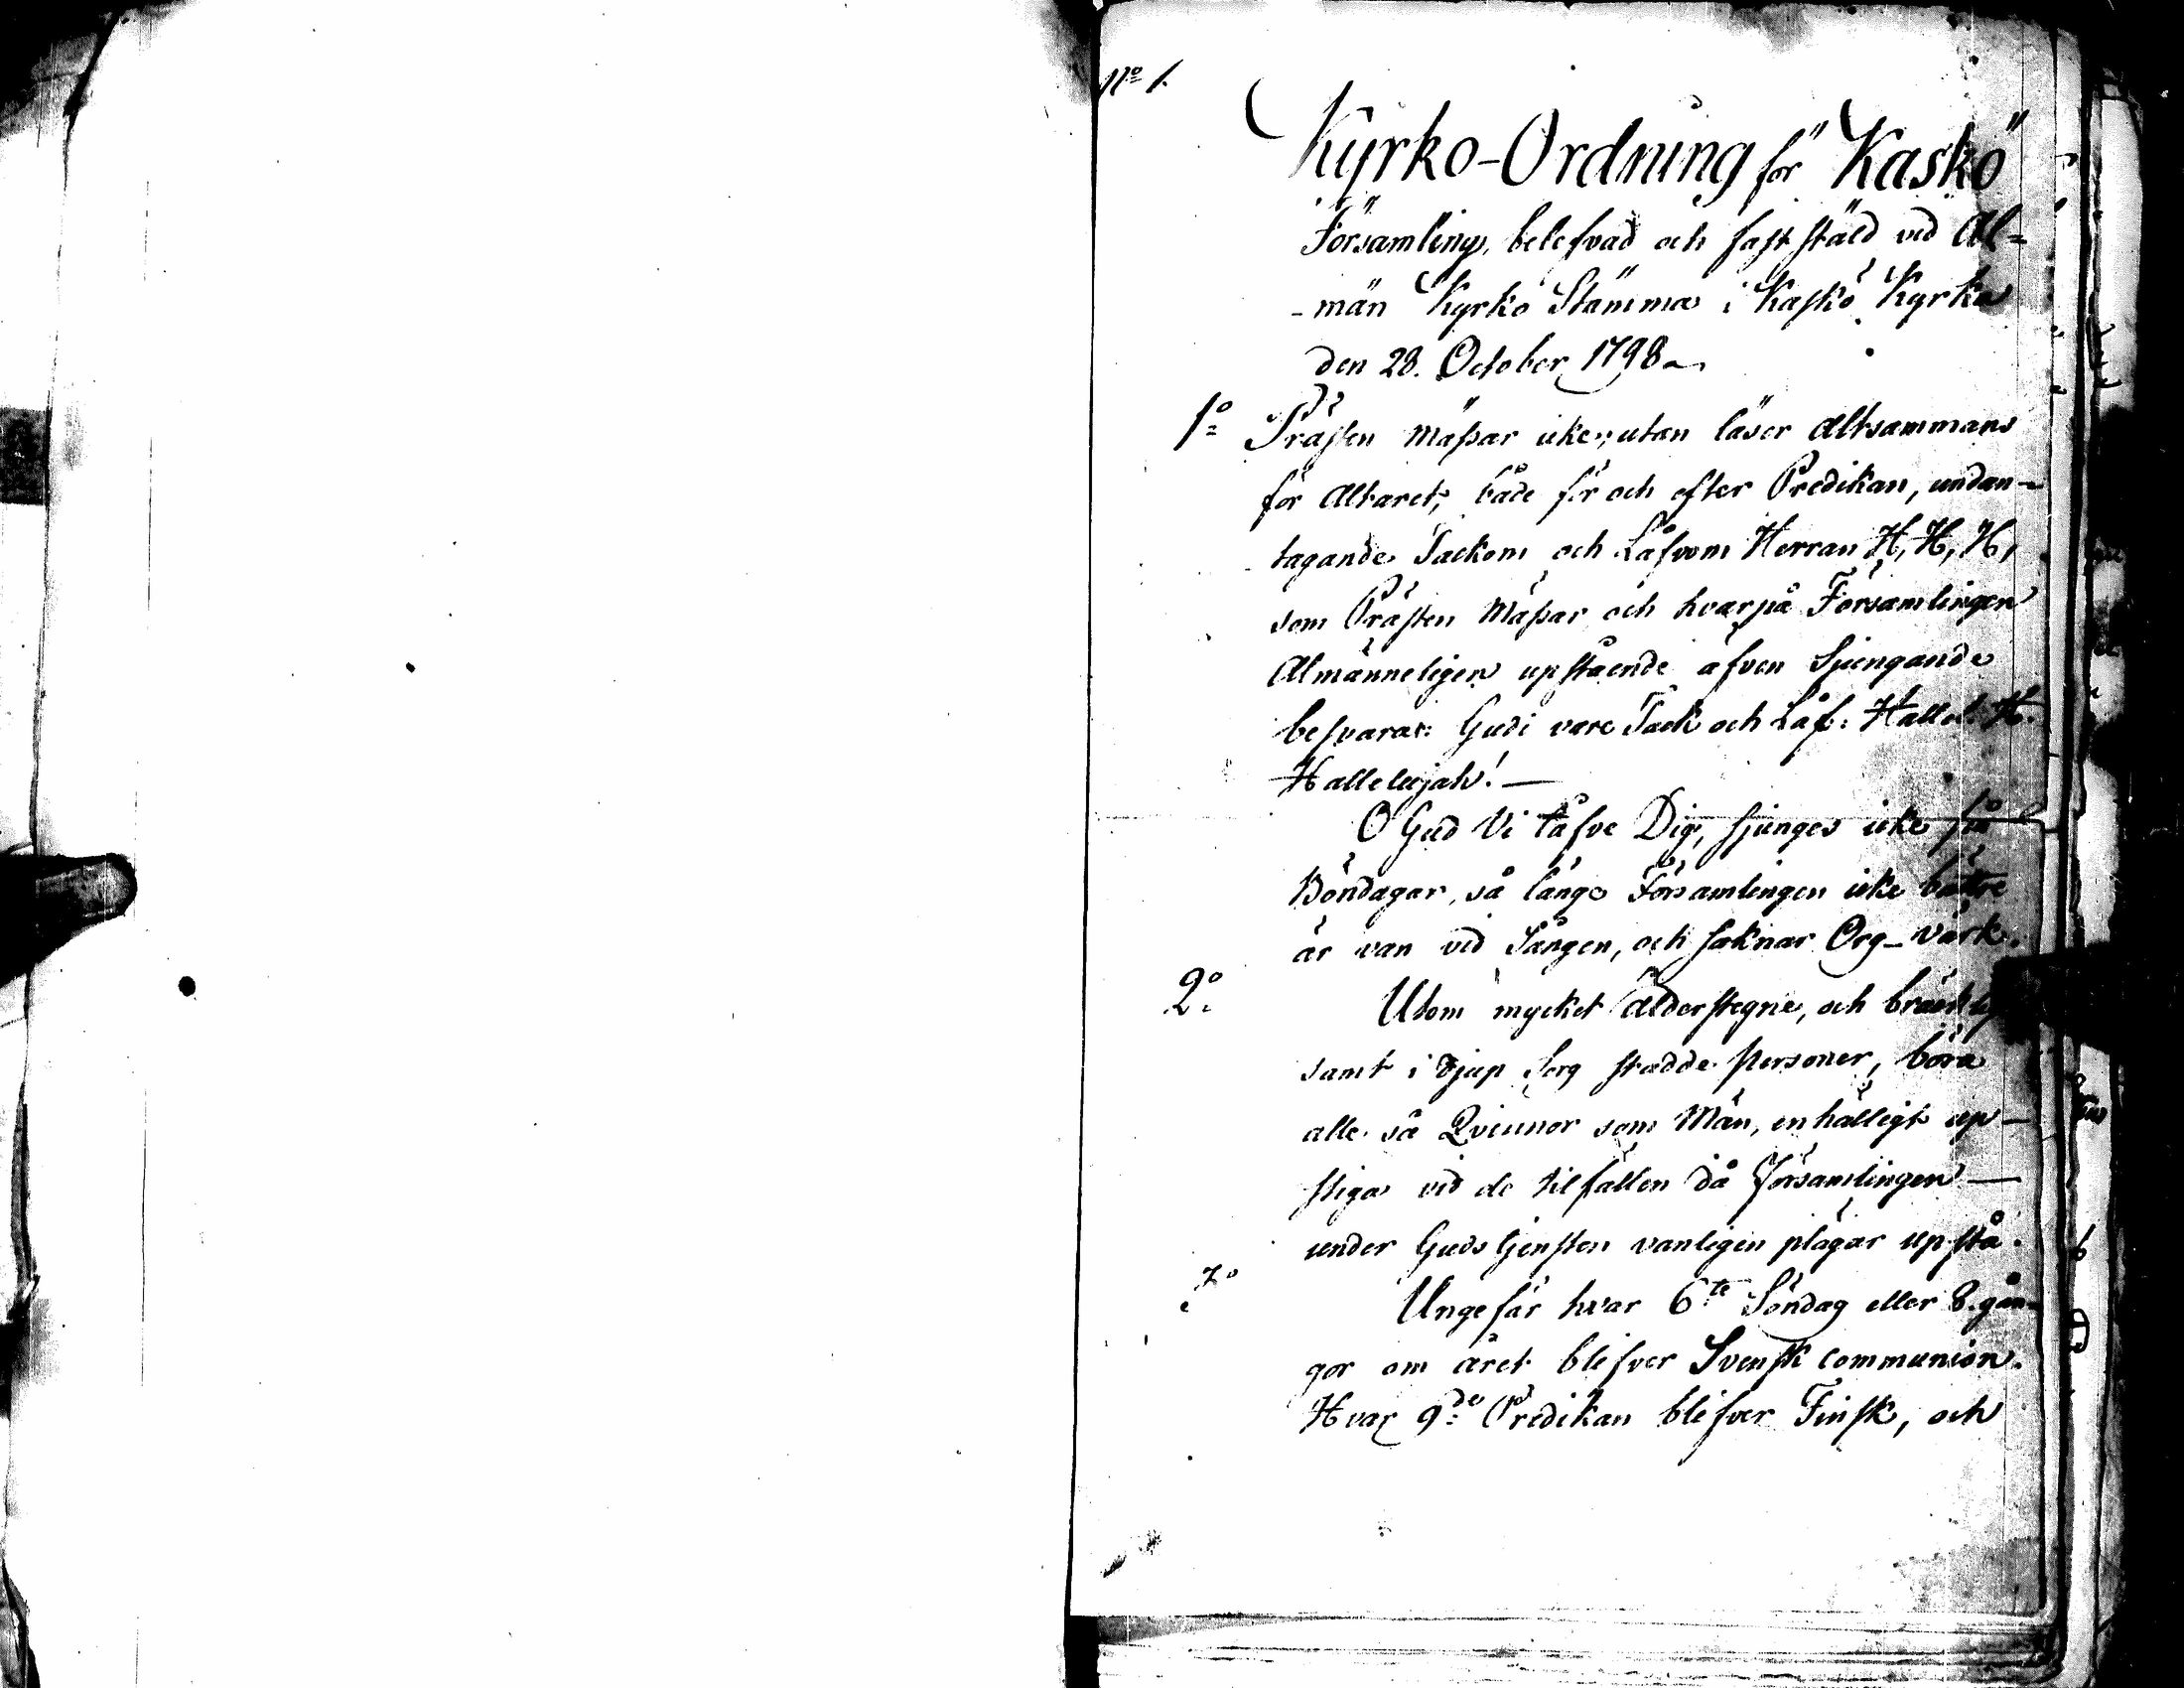 No 1.
Kyrko-Ordning för Kaskö
Församling, belefvad och faststäld vid Al=
-män Kyrko Stämma i Kaskö Kyrka
den 28. October 1798
1o Prästen Mässar icke, utan läser altsammans
för Altaret, både för och efter Predikan, undan-
tagande Tackom och Låfvom Herran H, H, H,
som Prästen Mässar och hvarpå Församlingen
Almänneligen upstående äfven Sjungande
besvarar: Gudi vare Tack och Låf: Hallel: H.
Hallelujah! —
O Gud Vi Låfve Dig, sjunges icke på
Böndagar, så länge Församlingen icke bättre
är van vid Sången, och saknar Org-värk.
2o Utom mycket ålderstegne, och bräcklig
samt i djup Sorg stadde personer, böra
alle så Qvinnor som Män, enhälligt up-
stiga vid de tilfällen då Församlingen —
under Gudstjensten vanligen plägar upstå.
3o Ungefär hvar 6te Söndag eller 8 gån-
gor om året blifver Svensk communion.
Hvar 9de Predikan blifver Finsk, och